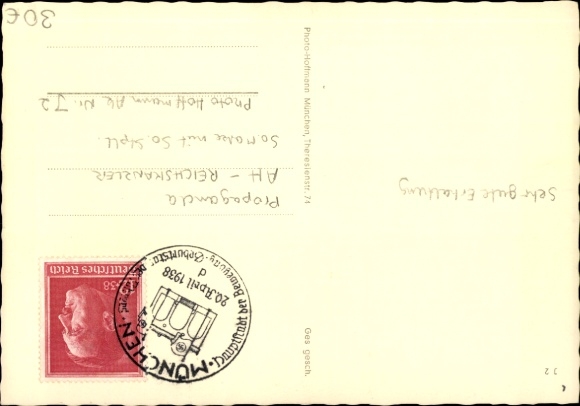 30€
Photo Hoffmann AH Nr. J2
So. Marke mit So. Stpl.
AH – REICHSKANZLER
Propaganda
Sehr gute Erhaltung
Photo-Hoffmann München, Theresienstr. 74
Ges. gesch.
J 2
Deutsches Reich
MÜNCHEN
Hauptstadt der Bewegung · Geburtstag des Führers
20. April 1938
d